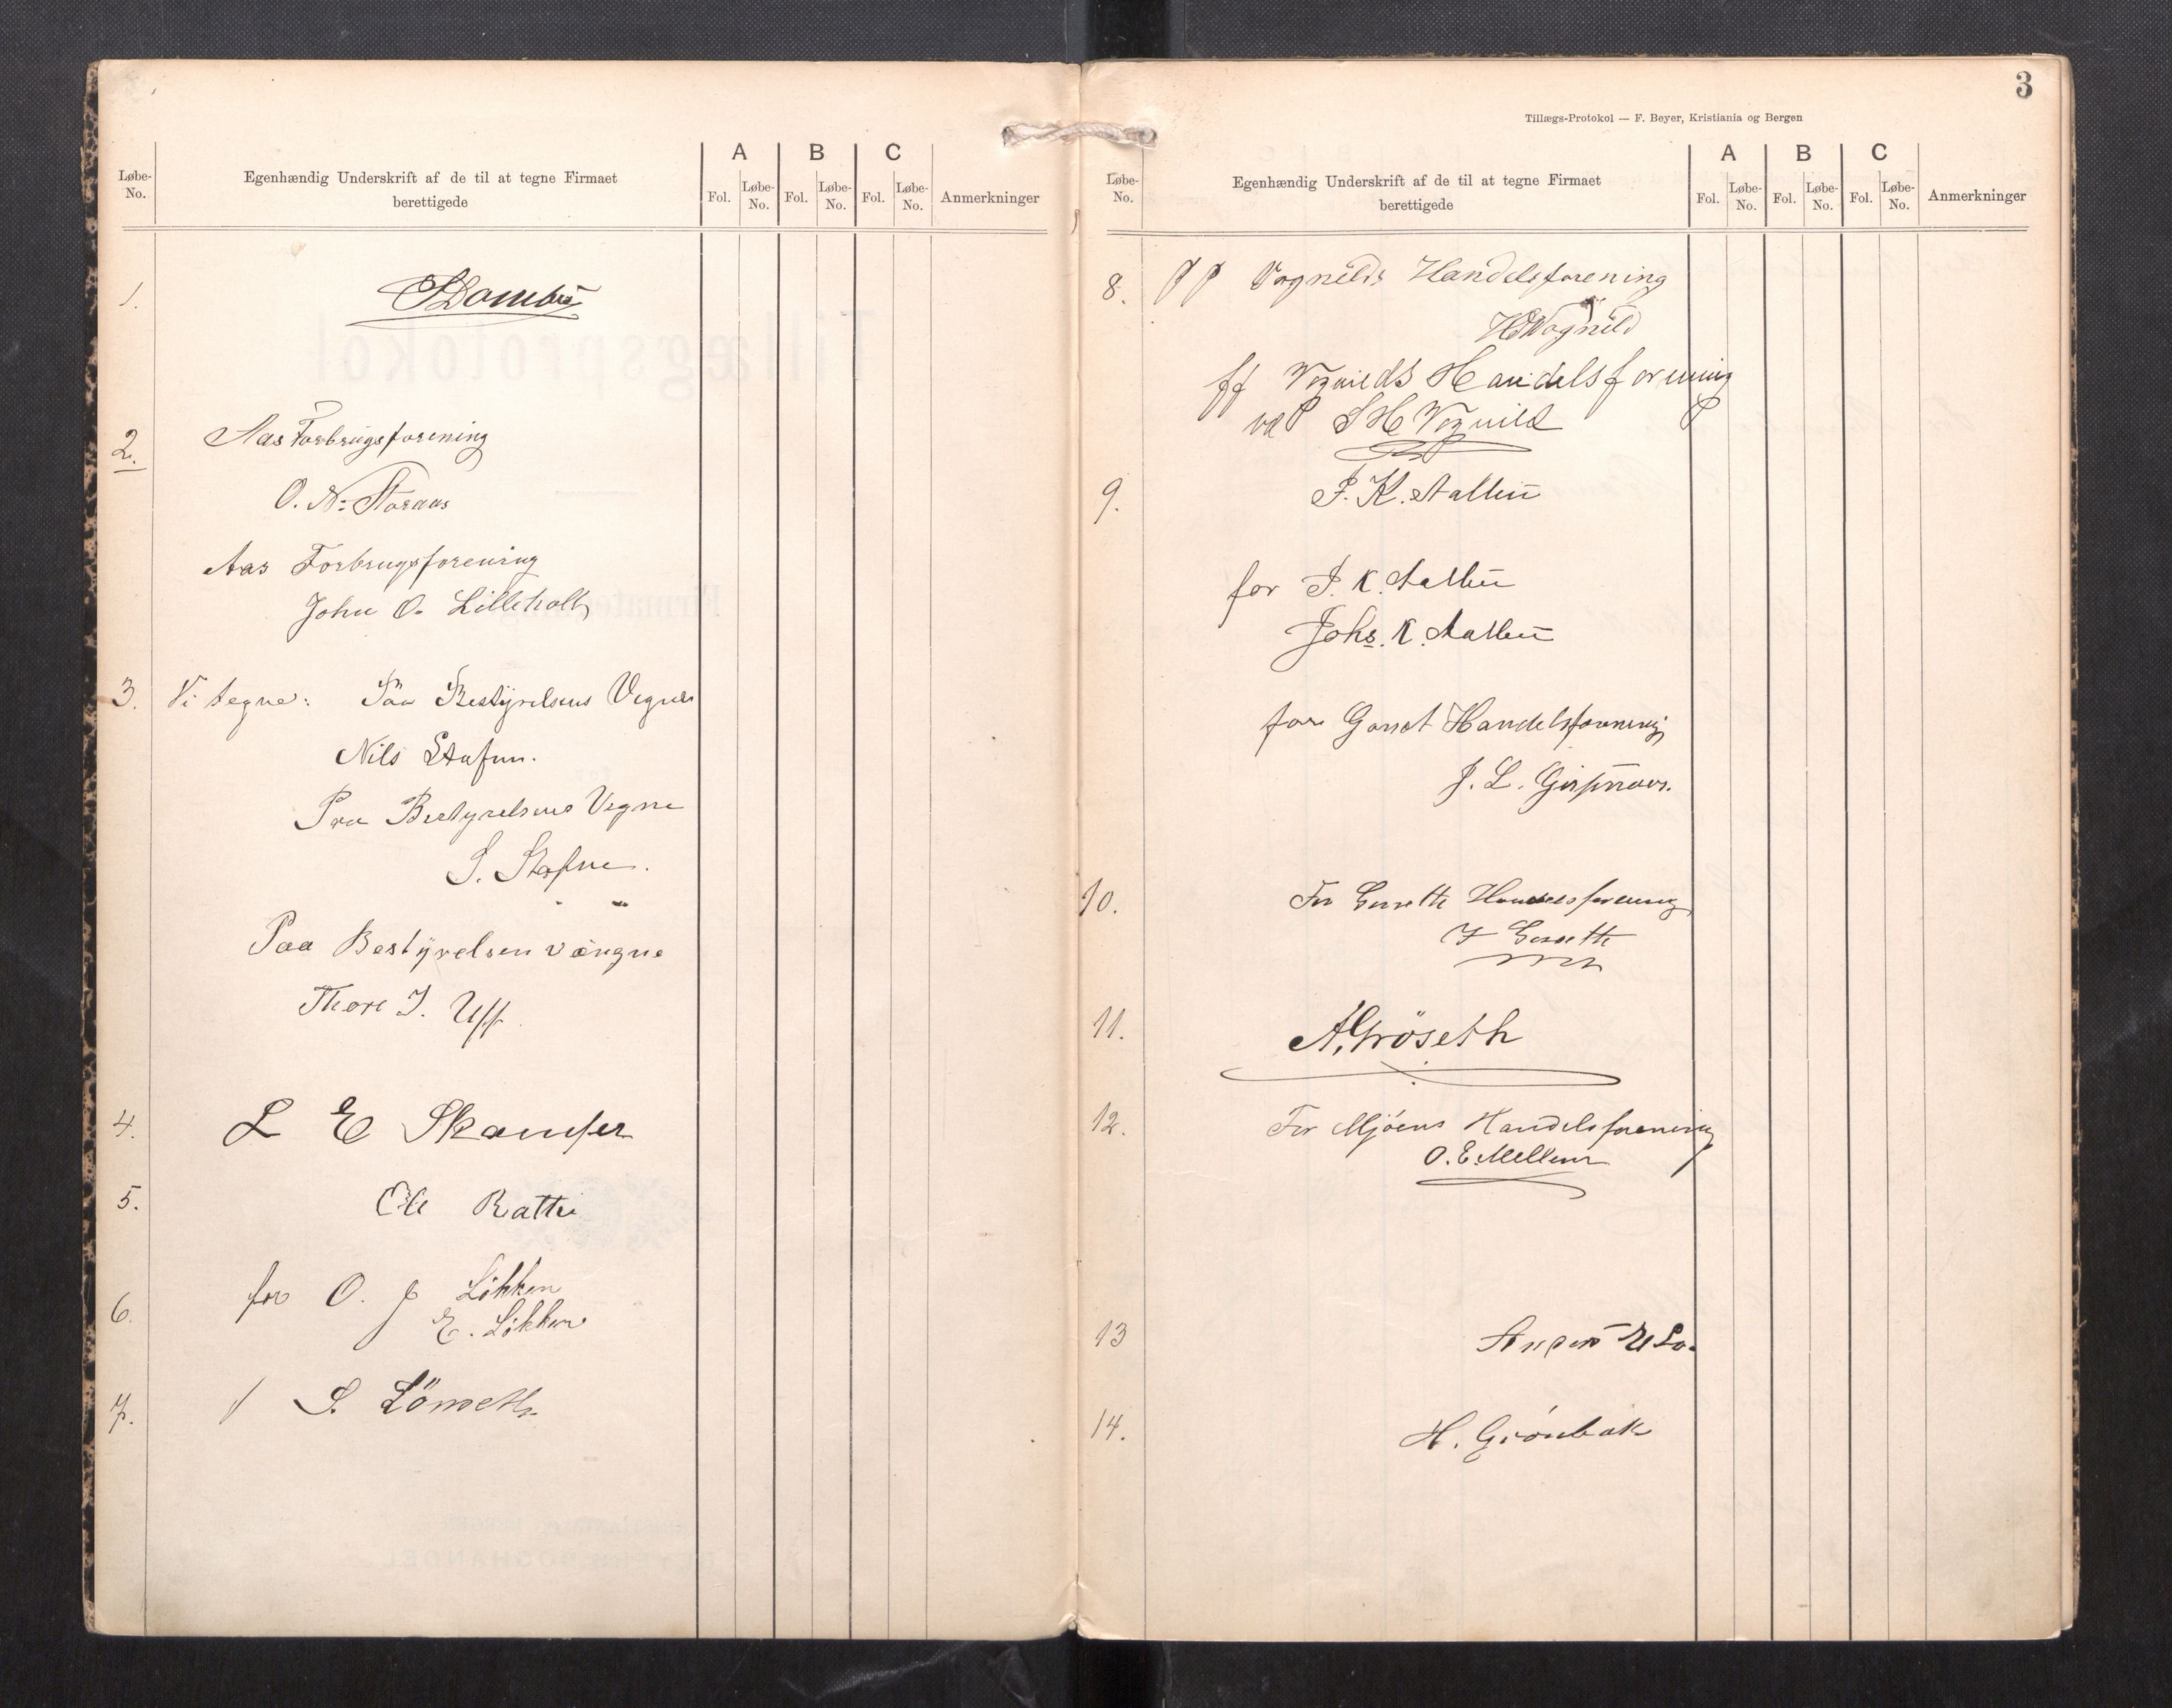 Løbe-No.
Egenhændig Underskrift af de til at tegne Firmaet berettigede
A
B
C
Fol.
Løbe-No.
Fol.
Løbe-No.
Fol.
Løbe-No.
Anmerkninger
1.
2.
Aas Forbrugsforening
O. N. Storaas
Aas Forbrugsforening
John O. Lilleholt
3. Vi tegne: Paa Bestyrelsens Vegne
Nils Stafne.
Paa Bestyrelsens Vegne
S. Stafne.
Paa Bestÿrelsen vængne
Thore J. Uff
4. L E Skamfer
5. Ole Rattie
6. for O. J Løkken
E. Løkken
7. S. Lönseth
3
Tillægs-Protokol — F. Beyer, Kristiania og Bergen
Løbe-No.
Egenhændig Underskrift af de til at tegne Firmaet berettigede
A
B
C
Fol.
Løbe-No.
Fol.
Løbe-No.
Fol.
Løbe-No.
Anmerkninger
8. pp Vognilds Handelsforening
Vognild
ff Vognilds Handelsforening
S H Vognild
9. J. K. Aalbu
for J. K. Aalbu
Johs. K. Aalbu
for Handelsforening
J. L.
10. For Handelsforening
11. A. Gröseth
12. For Mjøens Handelsforening
O. E. Mellem
13
14. H. Grønbak